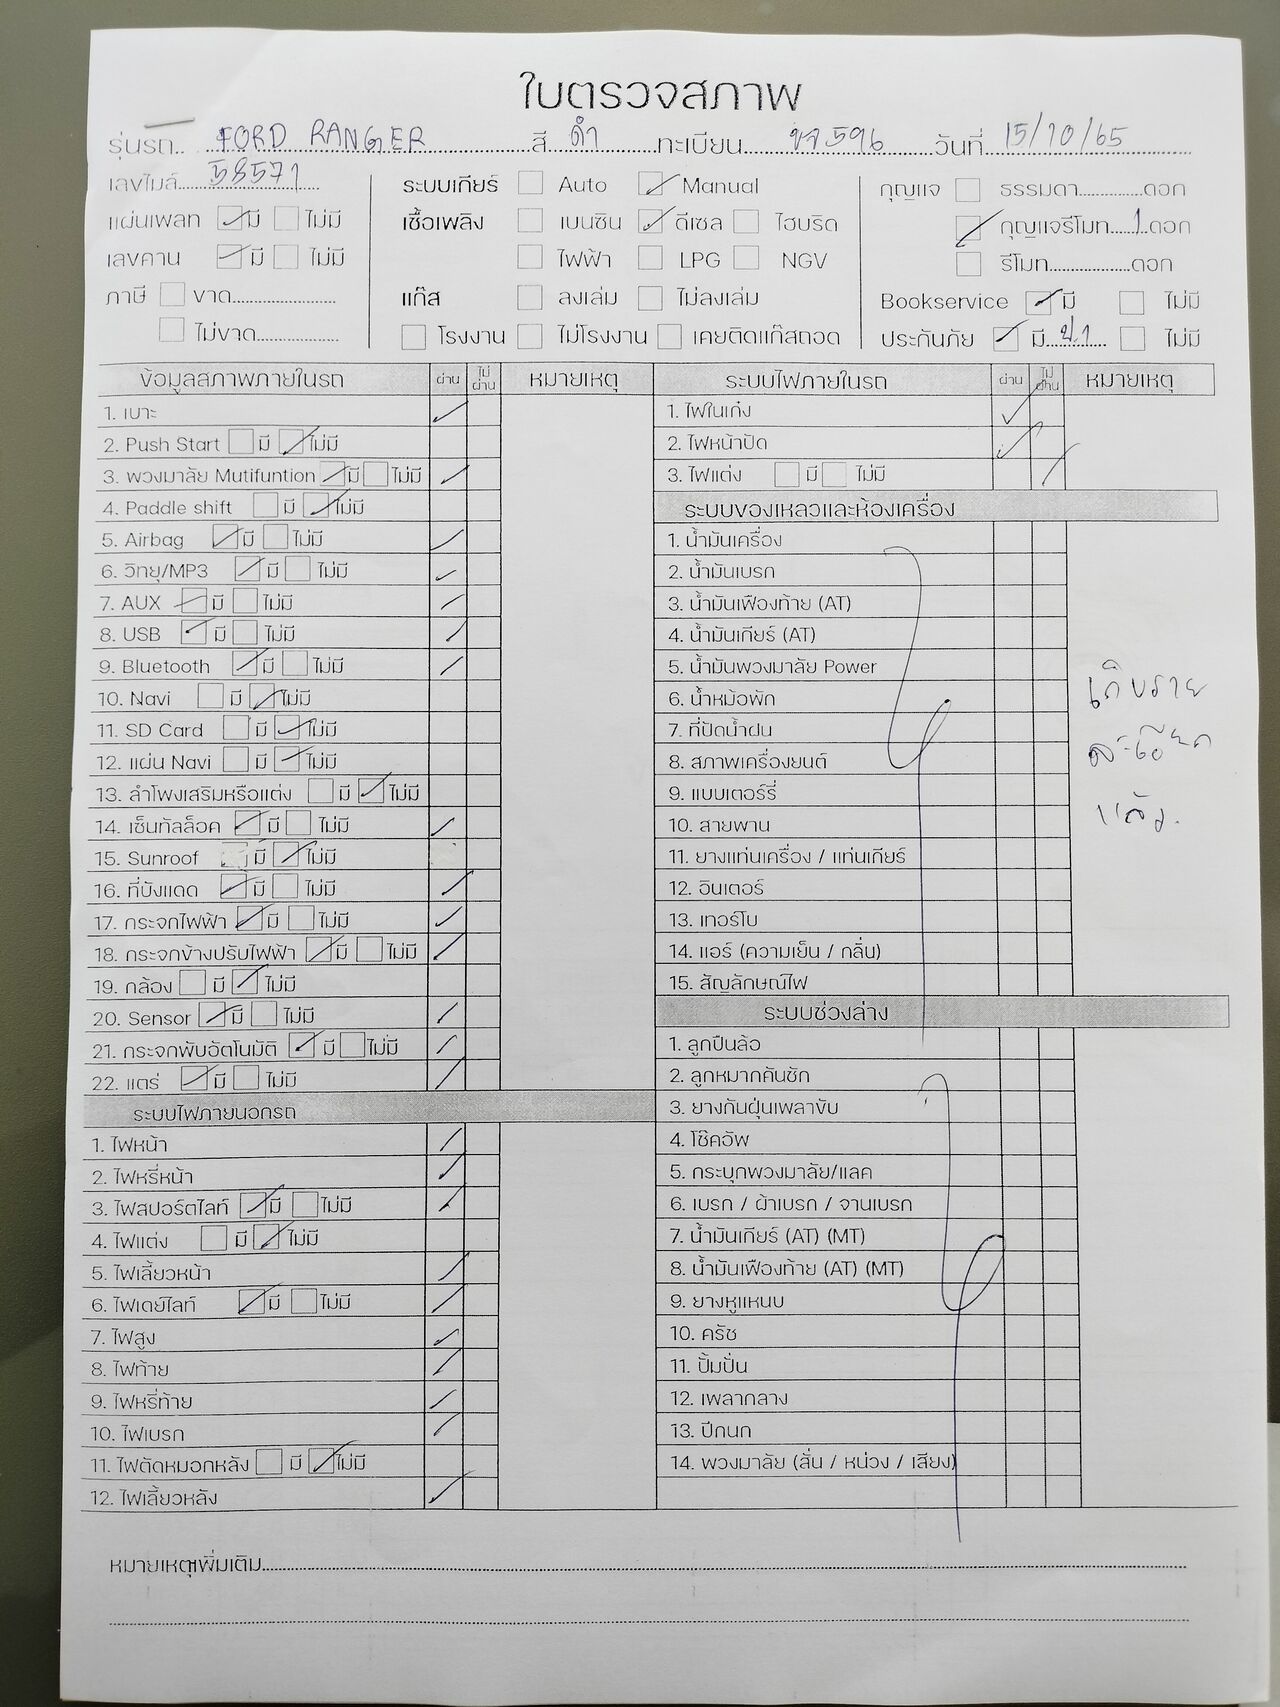 ใบตรวจสภาพ
รุ่นรถ.. FORD RANGER สี ดำ ทะเบียน ขจ 596 วันที่ 15/10/65
เลขไมล์ 58571
แผ่นเพลท มี ไม่มี
เลขคาน มี ไม่มี
ภาษี ขาด
ไม่ขาด
ระบบเกียร์ Auto Manual
เชื้อเพลิง เบนซิน ดีเซล ไฮบริด
ไฟฟ้า LPG NGV
แก๊ส ลงเล่ม ไม่ลงเล่ม
โรงงาน ไม่โรงงาน เคยติดแก๊สถอด
กุญแจ ธรรมดา ดอก
กุญแจรีโมท 1 ดอก
รีโมท ดอก
Bookservice มี ไม่มี
ประกันภัย มี ป.1 ไม่มี
ข้อมูลสภาพภายในรถ ผ่าน ไม่ผ่าน หมายเหตุ
1. เบาะ
2. Push Start มี ไม่มี
3. พวงมาลัย Mutifuntion มี ไม่มี
4. Paddle shift มี ไม่มี
5. Airbag มี ไม่มี
6. วิทยุ/MP3 มี ไม่มี
7. AUX มี ไม่มี
8. USB มี ไม่มี
9. Bluetooth มี ไม่มี
10. Navi มี ไม่มี
11. SD Card มี ไม่มี
12. แผ่น Navi มี ไม่มี
13. ลำโพงเสริมหรือแต่ง มี ไม่มี
14. เซ็นทัลล็อค มี ไม่มี
15. Sunroof มี ไม่มี
16. ที่บังแดด มี ไม่มี
17. กระจกไฟฟ้า มี ไม่มี
18. กระจกข้างปรับไฟฟ้า มี ไม่มี
19. กล้อง มี ไม่มี
20. Sensor มี ไม่มี
21. กระจกพับอัตโนมัติ มี ไม่มี
22. แตร่ มี ไม่มี
ระบบไฟภายนอกรถ
1. ไฟหน้า
2. ไฟหรี่หน้า
3. ไฟสปอร์ตไลท์ มี ไม่มี
4. ไฟแต่ง มี ไม่มี
5. ไฟเลี้ยวหน้า
6. ไฟเดย์ไลท์ มี ไม่มี
7. ไฟสูง
8. ไฟท้าย
9. ไฟหรี่ท้าย
10. ไฟเบรก
11. ไฟตัดหมอกหลัง มี ไม่มี
12. ไฟเลี้ยวหลัง
ระบบไฟภายในรถ ผ่าน ไม่ผ่าน หมายเหตุ
1. ไฟในเก๋ง
2. ไฟหน้าปัด
3. ไฟแต่ง มี ไม่มี
ระบบของเหลวและห้องเครื่อง
1. น้ำมันเครื่อง
2. น้ำมันเบรก
3. น้ำมันเฟืองท้าย (AT)
4. น้ำมันเกียร์ (AT)
5. น้ำมันพวงมาลัย Power
6. น้ำหม้อพัก
7. ที่ปัดน้ำฝน
8. สภาพเครื่องยนต์
9. แบบเตอร์รี่
10. สายพาน
11. ยางแท่นเครื่อง / แท่นเกียร์
12. อินเตอร์
13. เทอร์โบ
14. แอร์ (ความเย็น / กลิ่น)
15. สัญลักษณ์ไฟ
เก็บราย
ละเอียด
แล้ว.
ระบบช่วงล่าง
1. ลูกปืนล้อ
2. ลูกหมากคันชัก
3. ยางกันฝุ่นเพลาขับ
4. โช๊คอัพ
5. กระบุกพวงมาลัย/แลค
6. เบรก / ผ้าเบรก / จานเบรก
7. น้ำมันเกียร์ (AT) (MT)
8. น้ำมันเฟืองท้าย (AT) (MT)
9. ยางหูแหนบ
10. ครัช
11. ปั้มปั่น
12. เพลากลาง
13. ปีกนก
14. พวงมาลัย (สั่น / หน่วง / เสียง)
หมายเหตุเพิ่มเติม